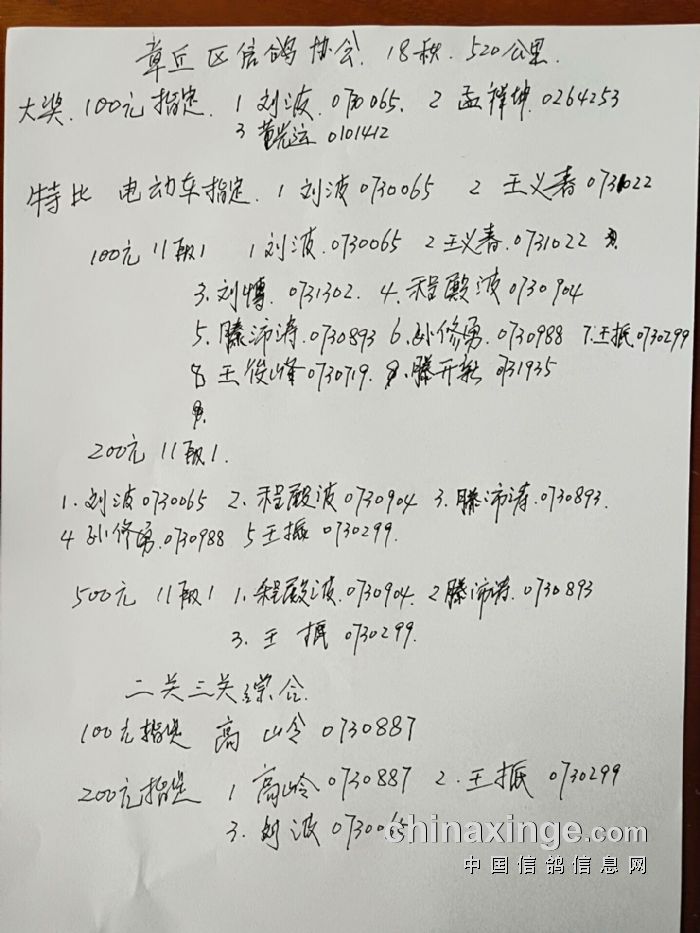 章丘区信鸽协会.18秋.520公里.
大奖.100元指定.1刘波.0730065.2孟祥坤.0264253
3黄光运0101412
特比 电动车指定.1刘波0730065 2王义春0731022
100元11取1 1刘波.0730065 2王义春.0731022
3.刘博.0731302.4.程殿波0730904
5.滕沛涛.0730893 6.孙修勇.0730988 7.王振0730299
8王俊峰0730719.9.滕开新0731935
9.
200元11取1.
1.刘波0730065 2.程殿波0730904 3.滕沛涛.0730893.
4孙修勇.0730988 5王振0730299.
500元11取1 1.程殿波.0730904.2滕沛涛.0730893
3.王振0730299.
二关三关综合
100元指定 高山岭0730887
200元指定 1高岭0730887 2.王振0730299
3.刘波0730065
chinaxinge.com
中国信鸽信息网